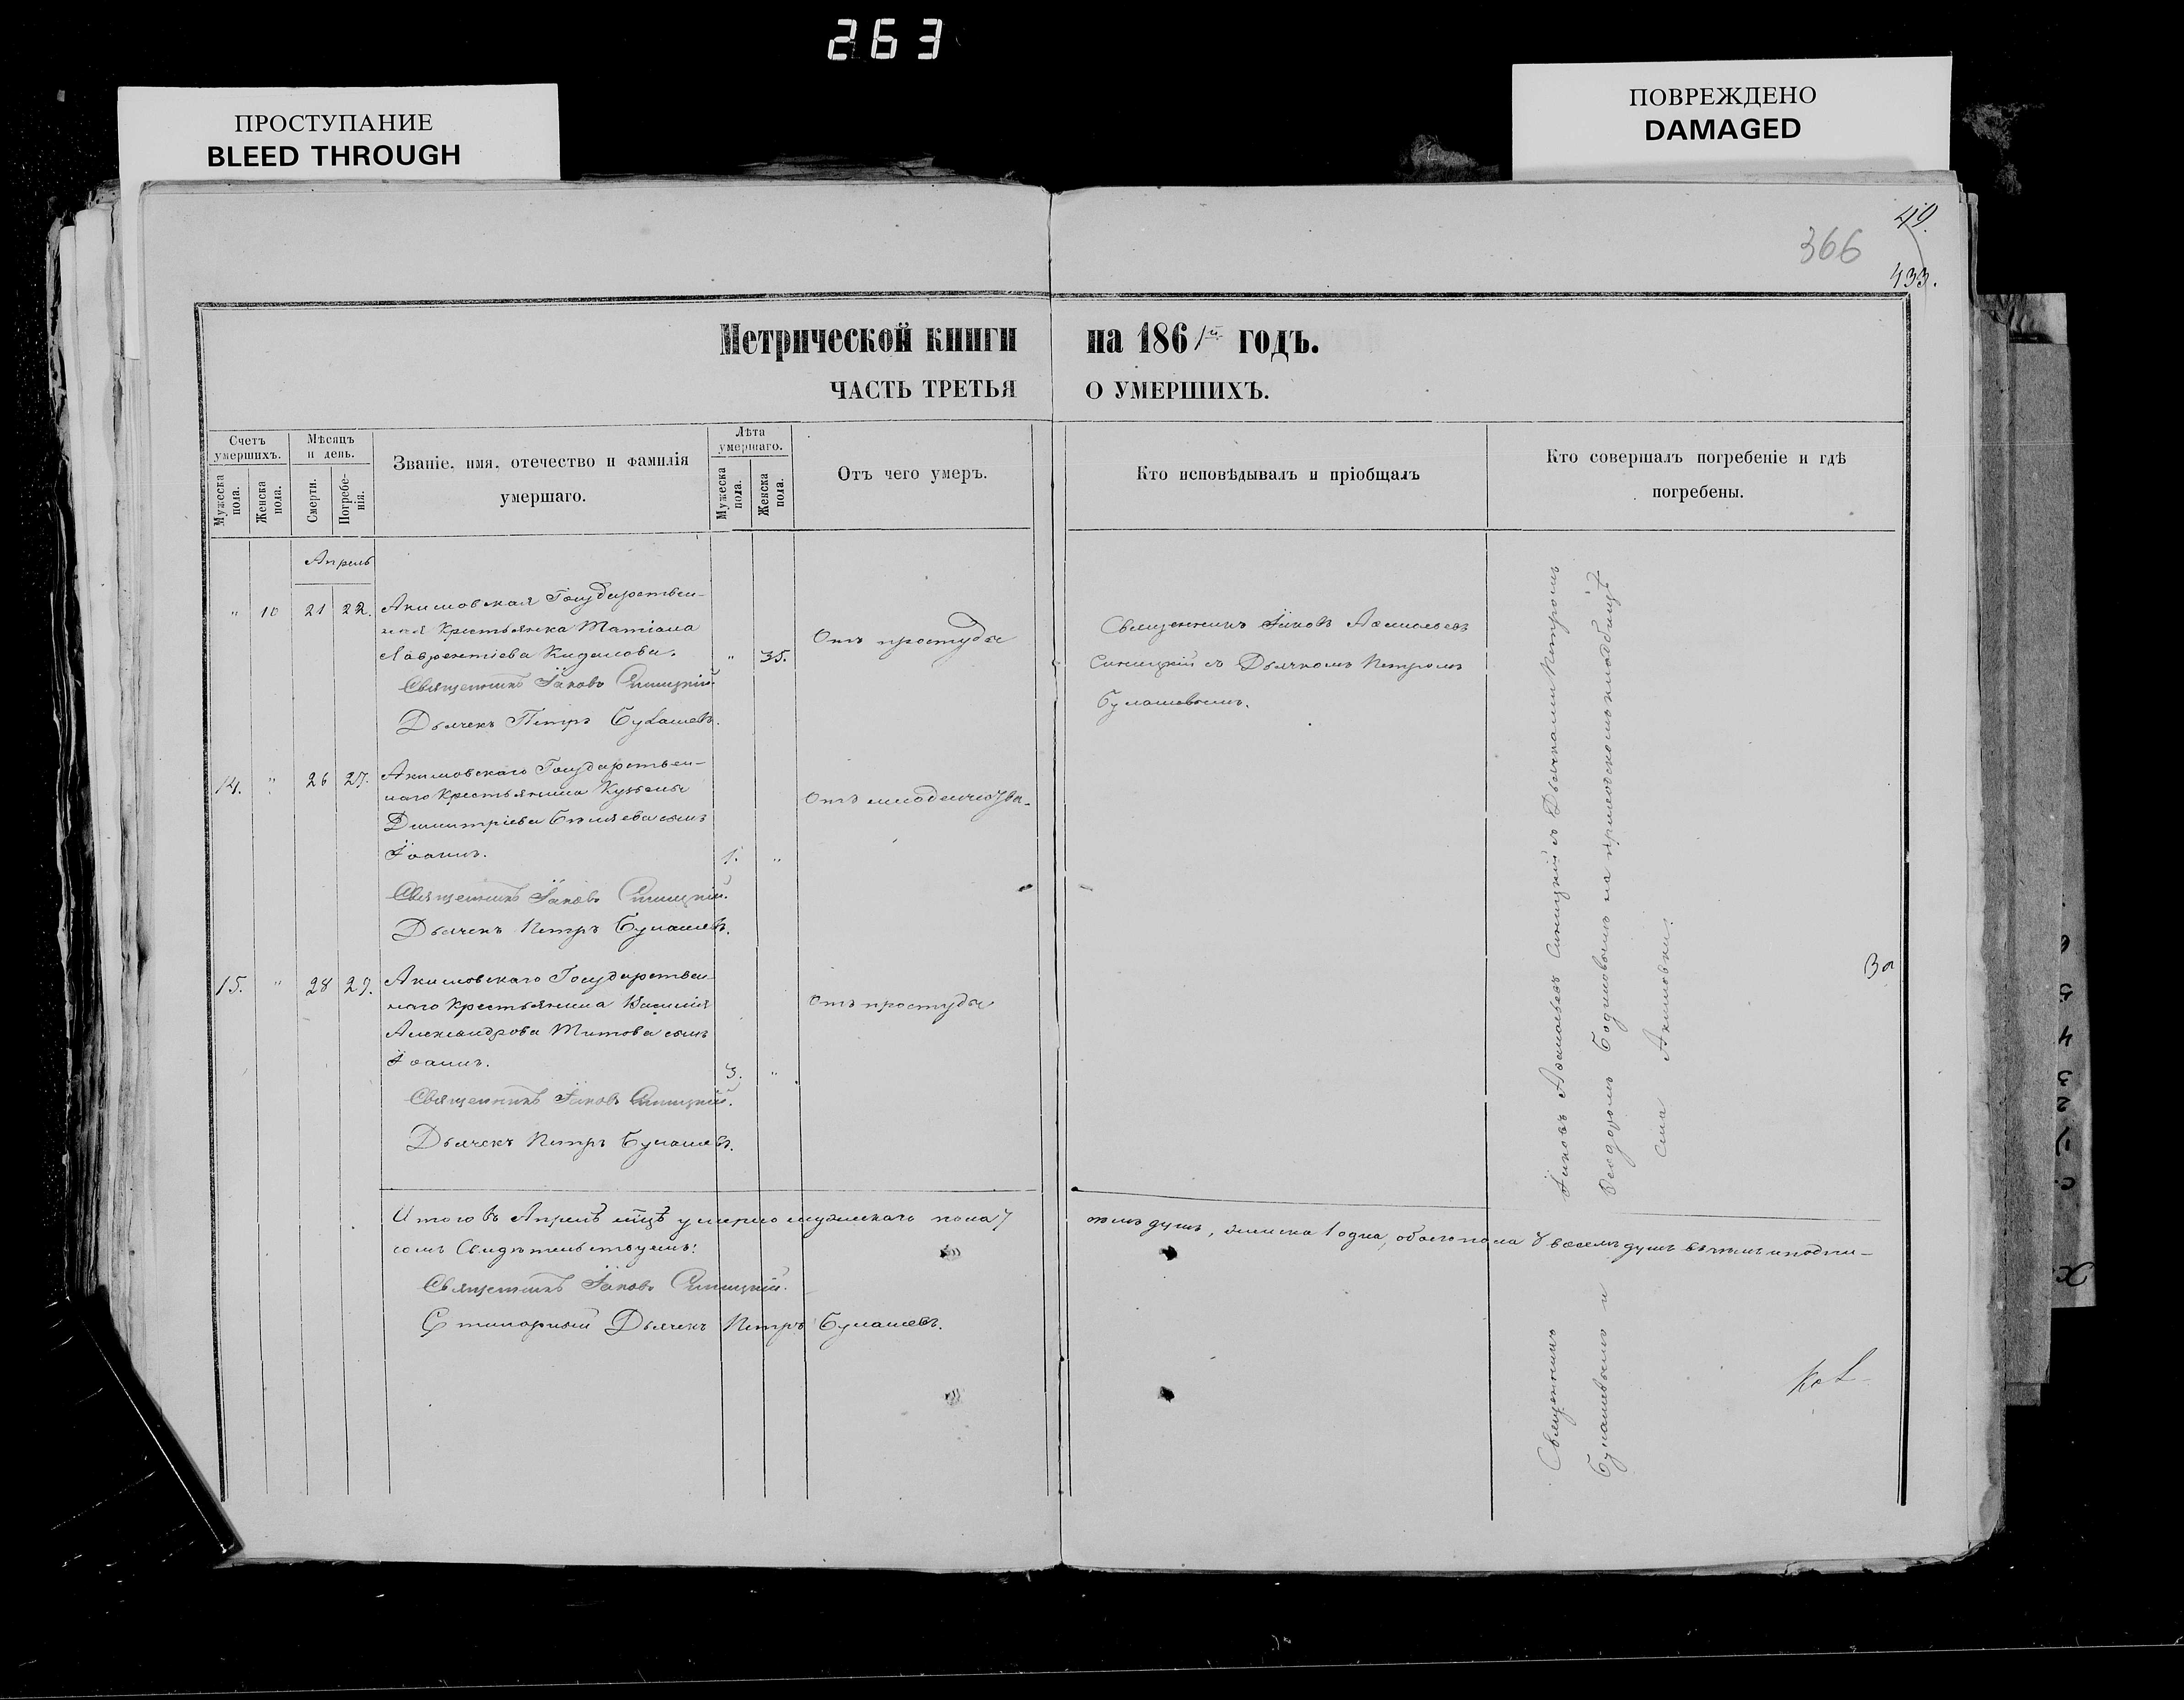 263
ПРОСТУПАНИЕ
BLEED THROUGH
ПОВРЕЖДЕНО
DAMAGED
49.
366
433.
Метрической книги на 1861й годъ.
ЧАСТЬ ТРЕТЬЯ О УМЕРШИХЪ.
Счетъ умершихъ.
Мужеска пола.
Женска пола.
Мѣсяцъ и день.
Смерти.
Погребенія.
Званіе, имя, отечество и фамилія
умершаго.
Лѣта умершаго.
Мужеска пола.
Женска пола.
Отъ чего умеръ.
Кто исповѣдывалъ и пріобщалъ
Кто совершалъ погребеніе и гдѣ
погребены.
Апрель
" 10 21 22. Акимовская Государствен-
ная крестьянка Татіана
Лаврентіева " 35.
Отъ простуды
Священникъ Іаковъ
Синицкій съ Дьячкомъ Петромъ
Булашевымъ.
Священникъ Іаковъ Синицкій.
Дьячекъ Петръ Булашевъ.
14. " 26 27. Акимовскаго Государствен-
наго Крестьянина Кузьмы
Димитріева Бѣляева сынъ
Іоаннъ. 1. "
Отъ младенчества.
Священникъ Іаковъ Синицкій.
Дьячекъ Петръ Булашевъ.
15. " 28 29. Акимовскаго Государствен-
наго Крестьянина Василія
Александрова Титова сынъ
Іоаннъ. 3. "
Отъ простуды
Священникъ Іаковъ Синицкій.
Дьячекъ Петръ Булашевъ.
Священникъ Іаковъ Синицкій съ Дьячками Петромъ
Булашевымъ и Ѳеодоромъ на приходскомъ кладбищѣ
села Акимовки.
За
Итого въ Апрелѣ мцѣ умерло мужескаго пола 7 семь душъ, женска 1 одна, обоего пола 8 восемь душъ въ чемъ и подпи-
сомъ Свидѣтельствуемъ:
Священникъ Іаковъ Синицкій.
Дьячекъ Петръ Булашевъ.